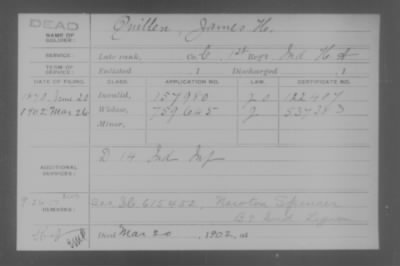 DEAD
NAME OF SOLDIER: Quillen, James H.
SERVICE: Late rank, Co. C, 1st Reg't Ind H A
TERM OF SERVICE: Enlisted , 1 Discharged , 1
DATE OF FILING. CLASS. APPLICATION NO. LAW. CERTIFICATE NO.
1870 June 20 Invalid, 157980 122407
1902 Mar 26 Widow, 759645
Minor,
ADDITIONAL SERVICES: D 14 Ind Inf
REMARKS: 615452, Newton Spencer
Died Mar 20, 1902, at